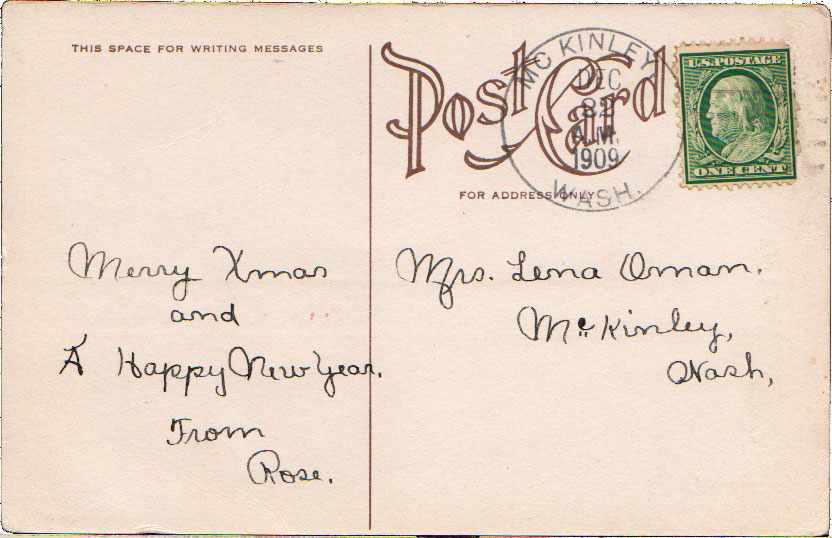 THIS SPACE FOR WRITING MESSAGES
Post Card
FOR ADDRESS ONLY
MC KINLEY,
DEC
A.M.
1909
WASH.
U.S. POSTAGE
ONE CENT
Merry Xmas
and
A Happy New Year.
From
Rose.
Mrs. Lena Oman.
McKinley,
Wash,